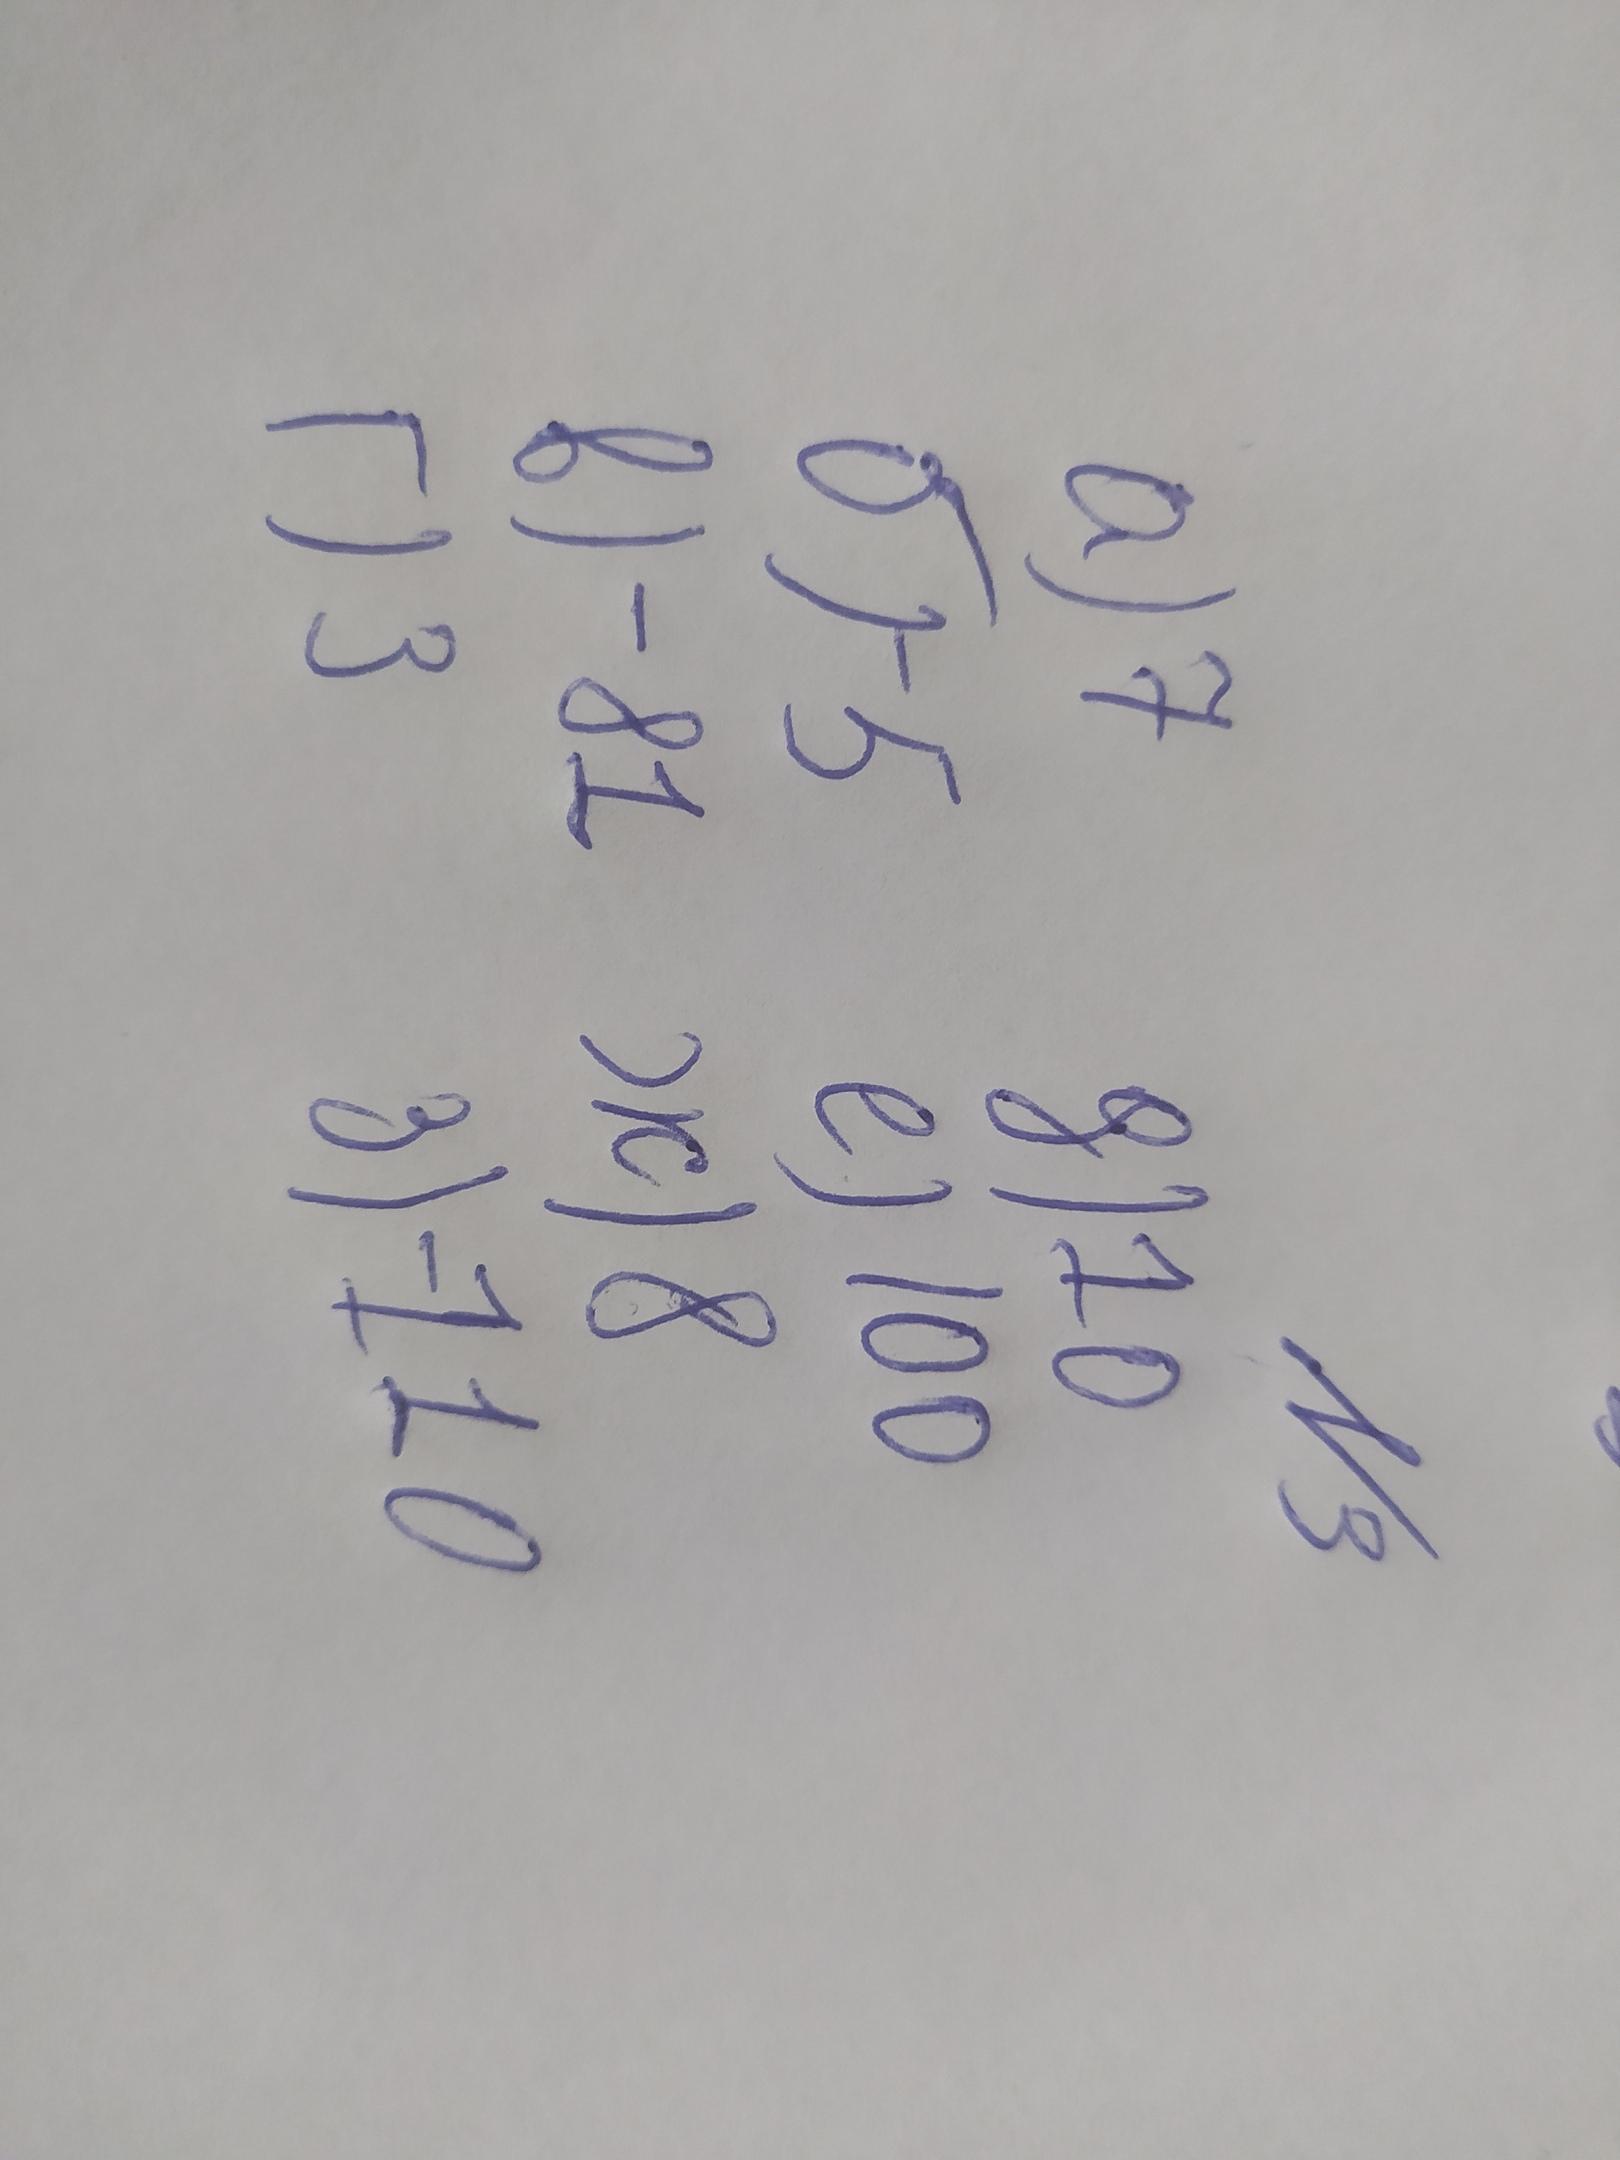 №3
а) 7 д) 10
б) -5 е) 100
в) -81 ж) 8
г) 3 з) -110